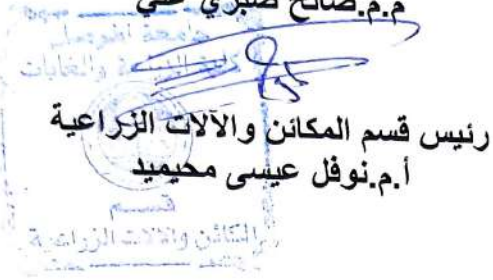 م.م.صالح صبري علي
جامعة الموصل
كلية الزراعة والغابات
رئيس قسم المكائن والآلات الزراعية
أ.م.نوفل عيسى محيميد
قسم
المكائن والآلات الزراعية